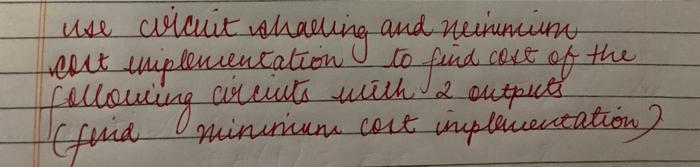 use circuit sharing and minimum
cost implementation to find cost of the
following circuits with 2 outputs
(find minimum cost implementation)